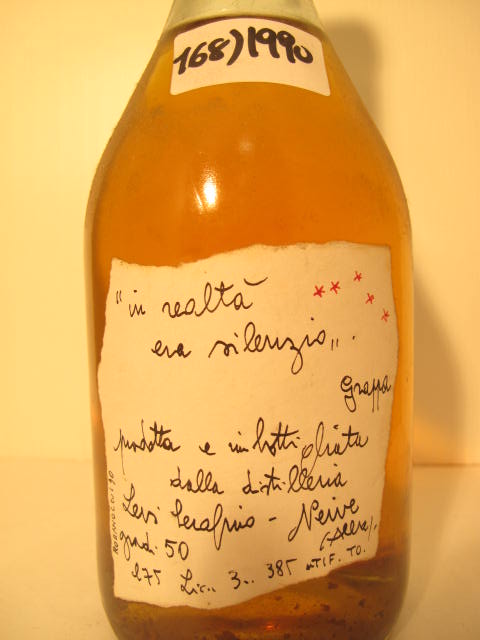 168) 1990
"in realtà
era silenzio".
Grappa
prodotta e imbottigliata
dalla distilleria
Levi Serafino - Neive
gradi 50
l.75 Lic.. 3.. 385 UTIF. TO.